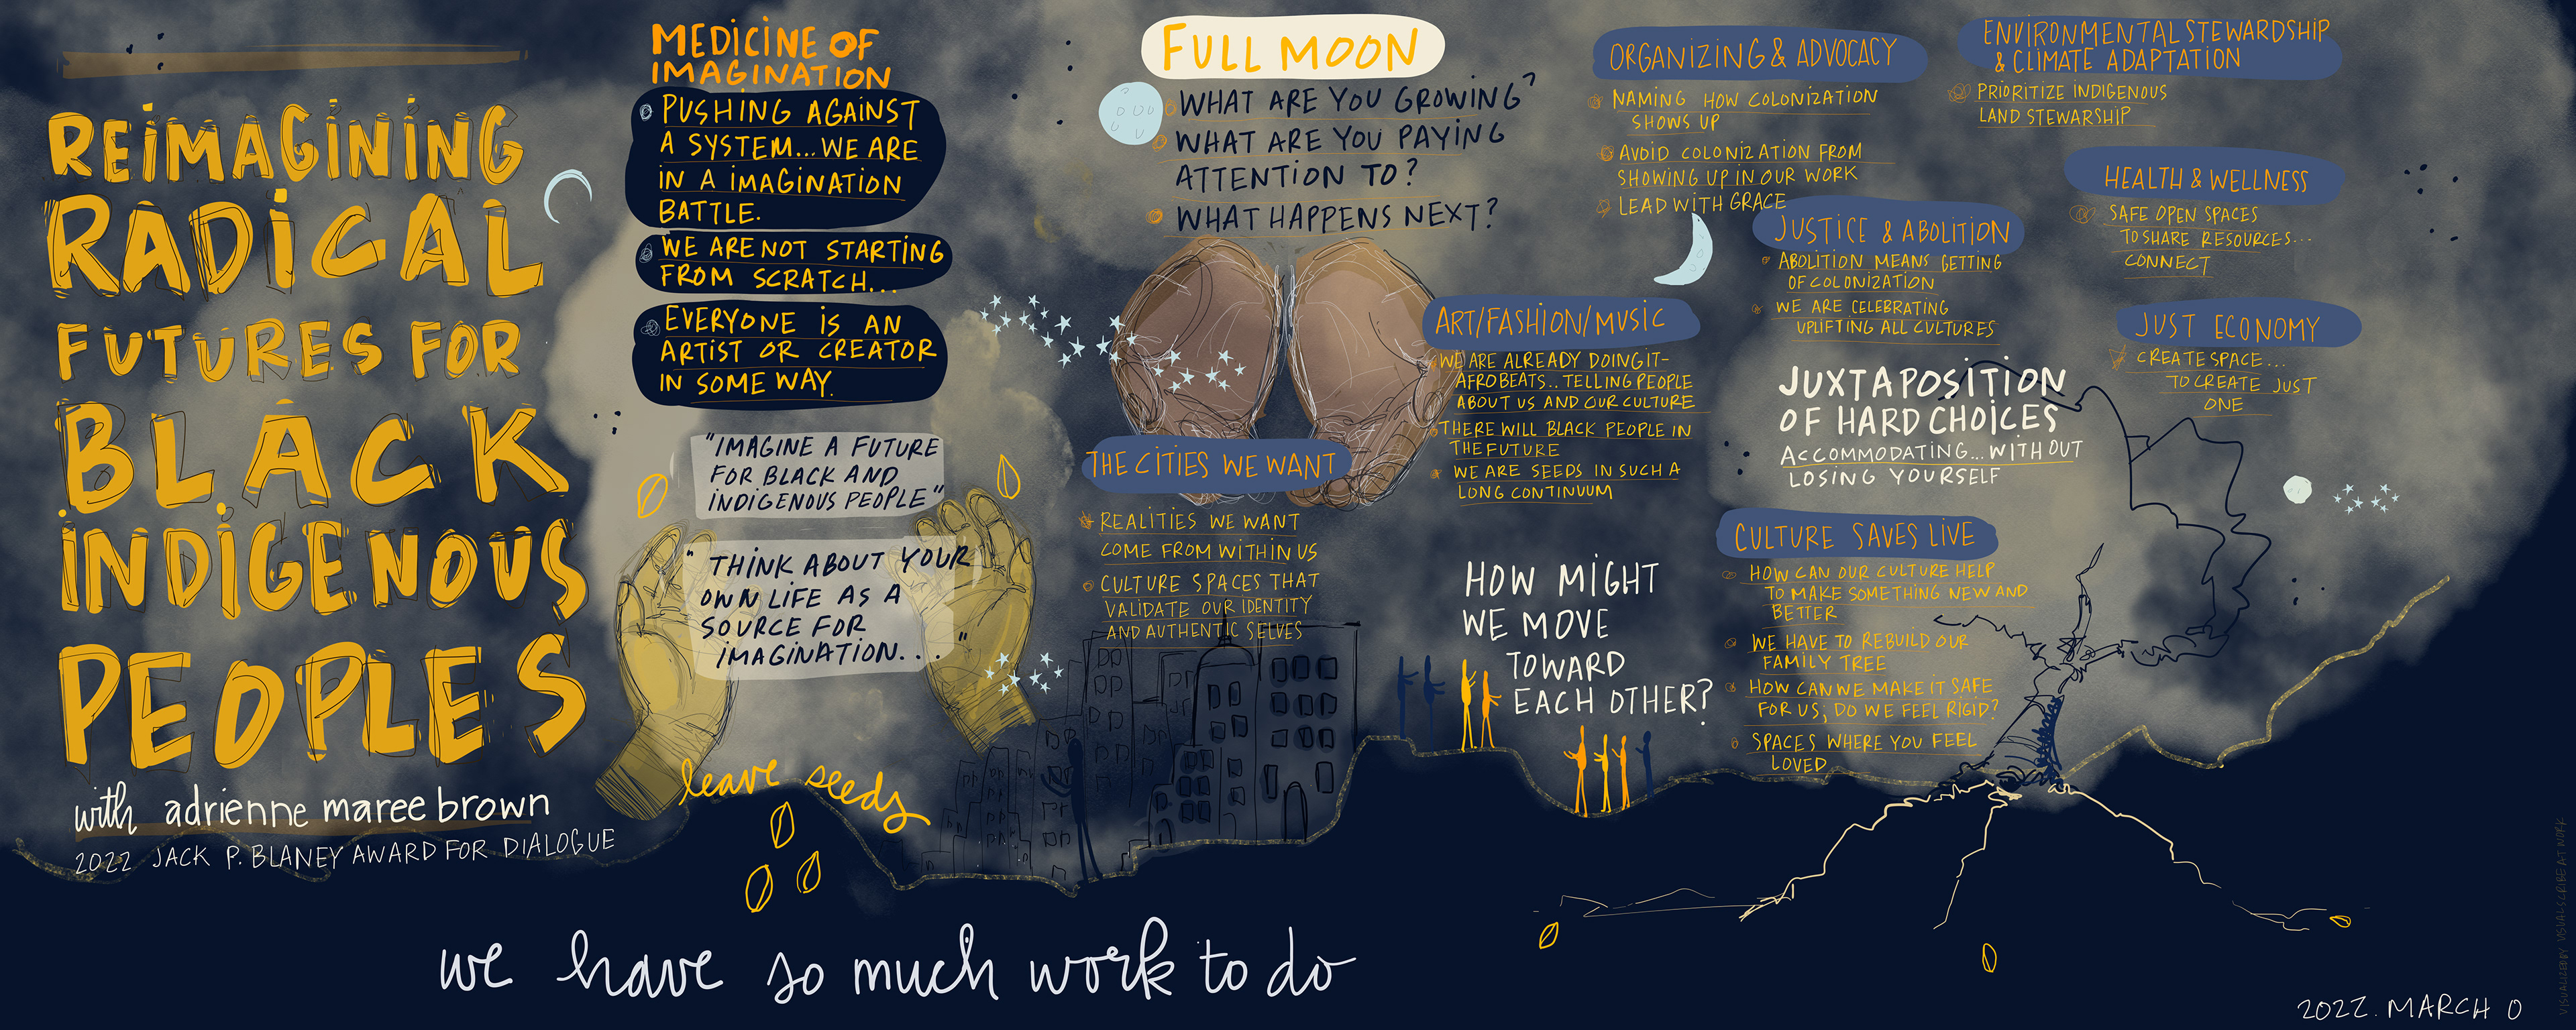 REIMAGINING
RADICAL
FUTURES FOR
BLACK
INDIGENOUS
PEOPLES
with adrienne maree brown
2022 JACK P. BLANEY AWARD FOR DIALOGUE
MEDICINE OF
IMAGINATION
PUSHING AGAINST
A SYSTEM...WE ARE
IN A IMAGINATION
BATTLE.
WE ARE NOT STARTING
FROM SCRATCH...
EVERYONE IS AN
ARTIST OR CREATOR
IN SOME WAY.
"IMAGINE A FUTURE
FOR BLACK AND
INDIGENOUS PEOPLE"
"THINK ABOUT YOUR
OWN LIFE AS A
SOURCE FOR
IMAGINATION..."
leave seeds
FULL MOON
WHAT ARE YOU GROWING?
WHAT ARE YOU PAYING
ATTENTION TO?
WHAT HAPPENS NEXT?
THE CITIES WE WANT
REALITIES WE WANT
COME FROM WITHIN US
CULTURE SPACES THAT
VALIDATE OUR IDENTITY
AND AUTHENTIC SELVES
ORGANIZING & ADVOCACY
NAMING HOW COLONIZATION
SHOWS UP
AVOID COLONIZATION FROM
SHOWING UP IN OUR WORK
LEAD WITH GRACE
ART/FASHION/MUSIC
WE ARE ALREADY DOING IT-
AFROBEATS.. TELLING PEOPLE
ABOUT US AND OUR CULTURE
THERE WILL BLACK PEOPLE IN
THE FUTURE
WE ARE SEEDS IN SUCH A
LONG CONTINUUM
HOW MIGHT
WE MOVE
TOWARD
EACH OTHER?
JUSTICE & ABOLITION
ABOLITION MEANS GETTING
OF COLONIZATION
WE ARE CELEBRATING
UPLIFTING ALL CULTURES
JUXTAPOSITION
OF HARD CHOICES
ACCOMMODATING...WITH OUT
LOSING YOURSELF
CULTURE SAVES LIVE
HOW CAN OUR CULTURE HELP
TO MAKE SOMETHING NEW AND
BETTER
WE HAVE TO REBUILD OUR
FAMILY TREE
HOW CAN WE MAKE IT SAFE
FOR US; DO WE FEEL RIGID?
SPACES WHERE YOU FEEL
LOVED
ENVIRONMENTAL STEWARDSHIP
& CLIMATE ADAPTATION
PRIORITIZE INDIGENOUS
LAND STEWARSHIP
HEALTH & WELLNESS
SAFE OPEN SPACES
TO SHARE RESOURCES...
CONNECT
JUST ECONOMY
CREATE SPACE...
TO CREATE JUST
ONE
we have so much work to do
2022. MARCH 0